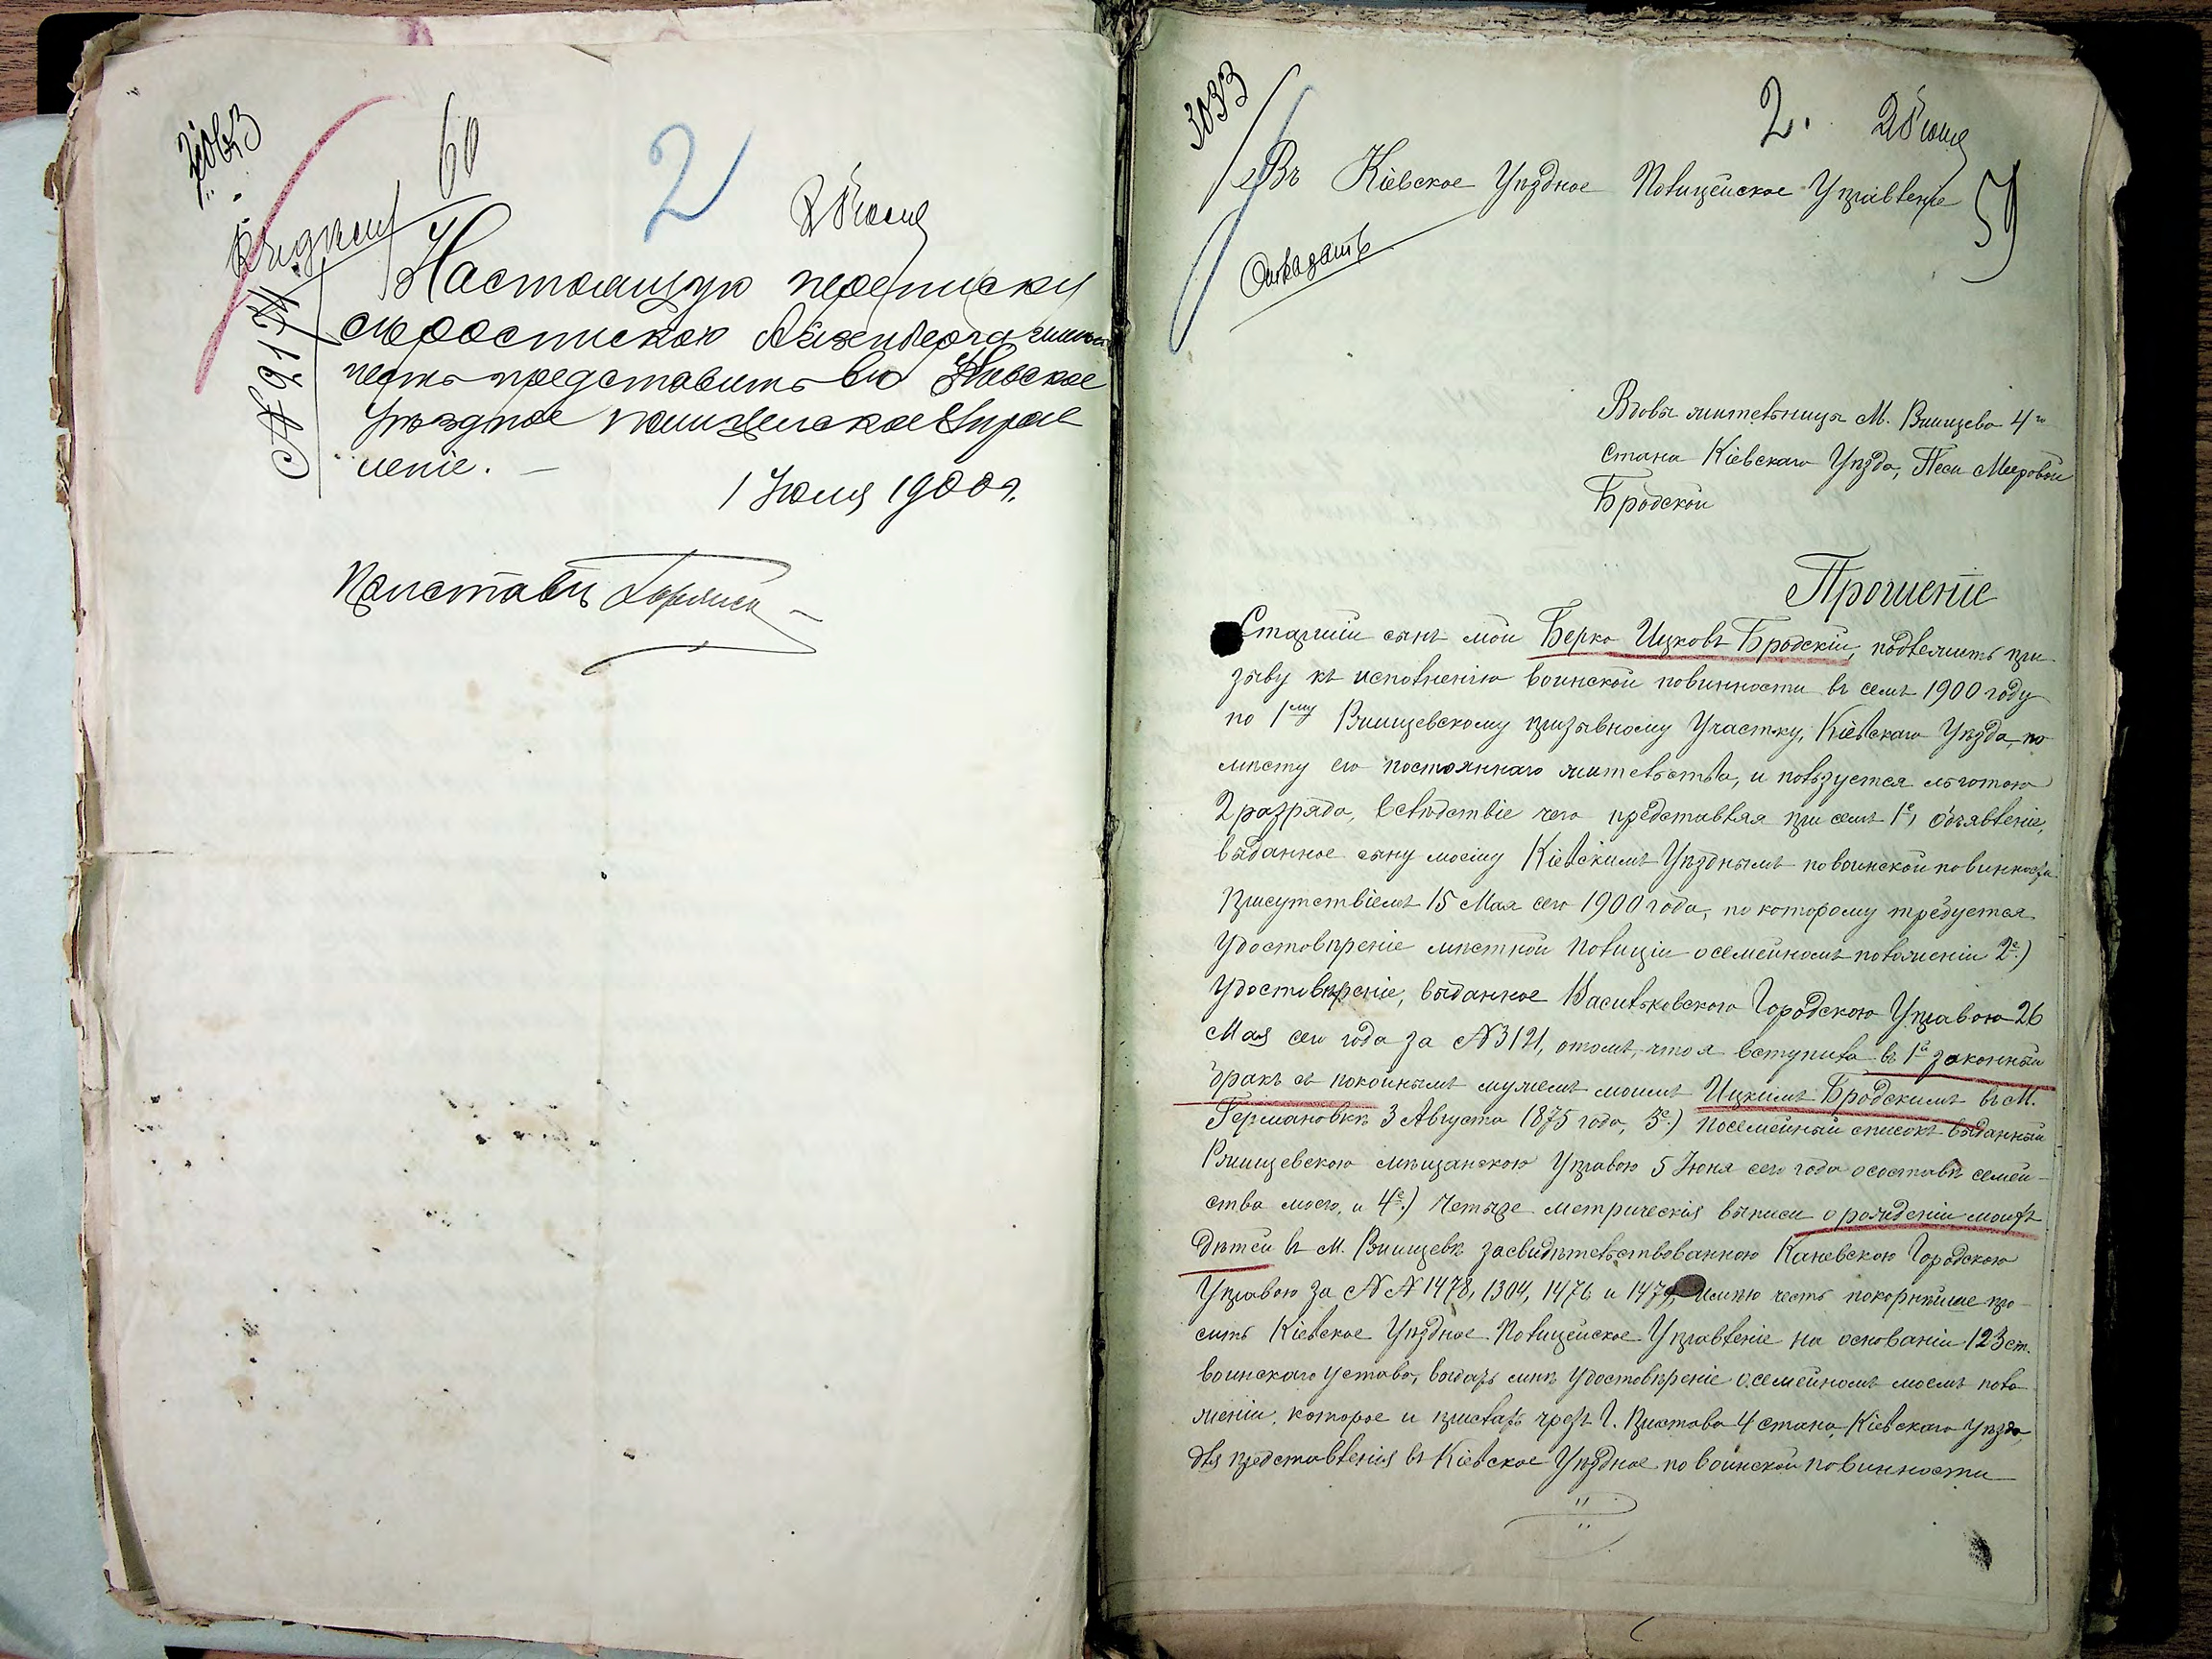 60
2
Настоящую переписку
съ роспискою Айзенберга имею
честь представить въ Кіевское
Уѣздное полицейское Управ
леніе. —
1 Іюля 1900 г.
Приставъ
3033
2.
59
Въ Кіевское Уѣздное Полицейское Управленіе
Отказать
Вдовы жительницы М. Ржищева 4го
стана Кіевскаго Уѣзда, Песи Мееровой
Бродской
Прошеніе
Старшій сынъ мой Берко Ицковъ Бродскій, подлежитъ при-
зыву къ исполненію воинской повинности въ семъ 1900 году
по 1му Ржищевскому призывному Участку, Кіевскаго Уѣзда, по
мѣсту его постояннаго жительства, и пользуется льготою
2 разряда, вслѣдствіе чего представляя при семъ 1е, объявленіе,
выданное сыну моему Кіевскимъ Уѣзднымъ по воинской повинности
Присутствіемъ 15 Мая сего 1900 года, по которому требуется
Удостовѣреніе мѣстной Полиціи о семейномъ положеніи 2е.)
Удостовѣреніе, выданное Васильковскою Городскою Управою 26
Мая сего года за № 3121, о томъ, что я вступила въ 1й законный
бракъ съ покойнымъ мужемъ моимъ Ицкимъ Бродскимъ въ М.
Германовкѣ 3 Августа 1875 года, 3е.) Посемейный списокъ выданный
Ржищевскою мѣщанскою Управою 5 Іюня сего года о составѣ семей-
ства моего, и 4е.) Четыре метрическія выписи о рожденіи моихъ
дѣтей въ М. Ржищевѣ засвидѣтельствованною Каневскою Городскою
Управою за №№ 1478, 1304, 1476 и 1479, имѣю честь покорнѣйше про-
сить Кіевское Уѣздное Полицейское Управленіе на основаніи 123 ст.
воинскаго устава, выдать мнѣ Удостовѣреніе о семейномъ моемъ поло-
женіи, которое и прислать чрезъ Г. Пристава 4 стана Кіевскаго Уѣзда,
для представленія въ Кіевское Уѣздное по воинской повинности